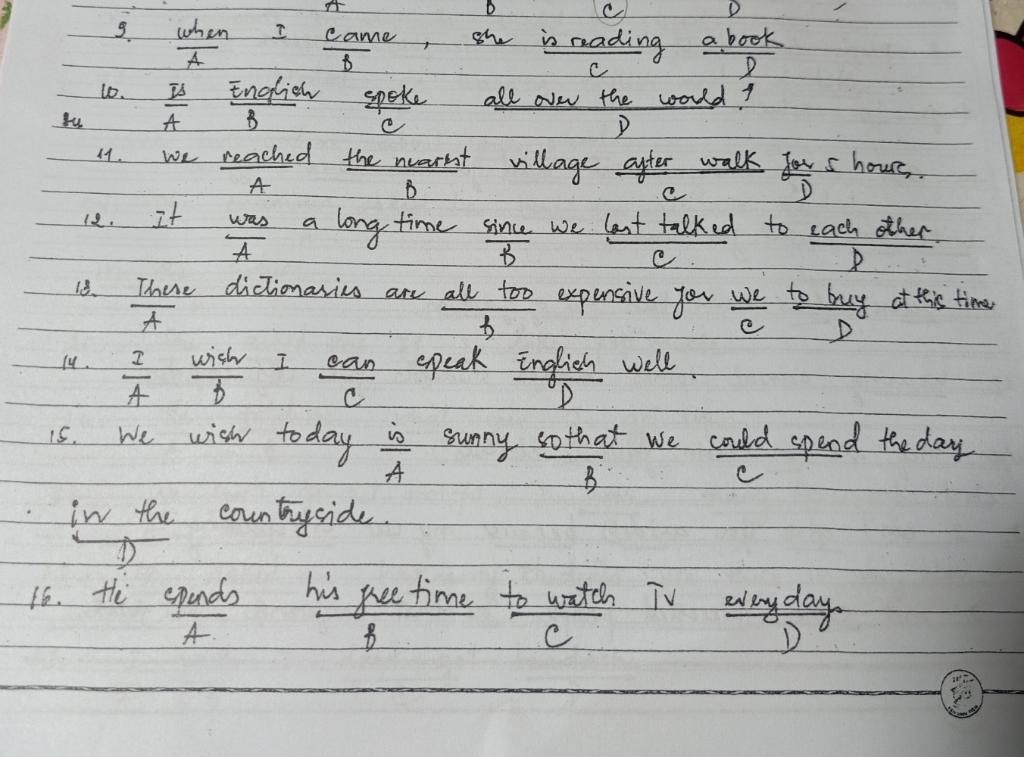 A B C D
9. when I came, she is reading a book
A B C D
10. Is English spoke all over the would?
A B C D
11. we reached the nearest village after walk for 5 hours.
A B C D
12. It was a long time since we last talked to each other.
A B C D
13. These dictionaries are all too expensive for we to buy at this time
A B C D
14. I wish I can speak English well.
A B C D
15. We wish today is sunny so that we could spend the day
A B C
in the countryside.
D
16. He spends his free time to watch TV everyday.
A B C D